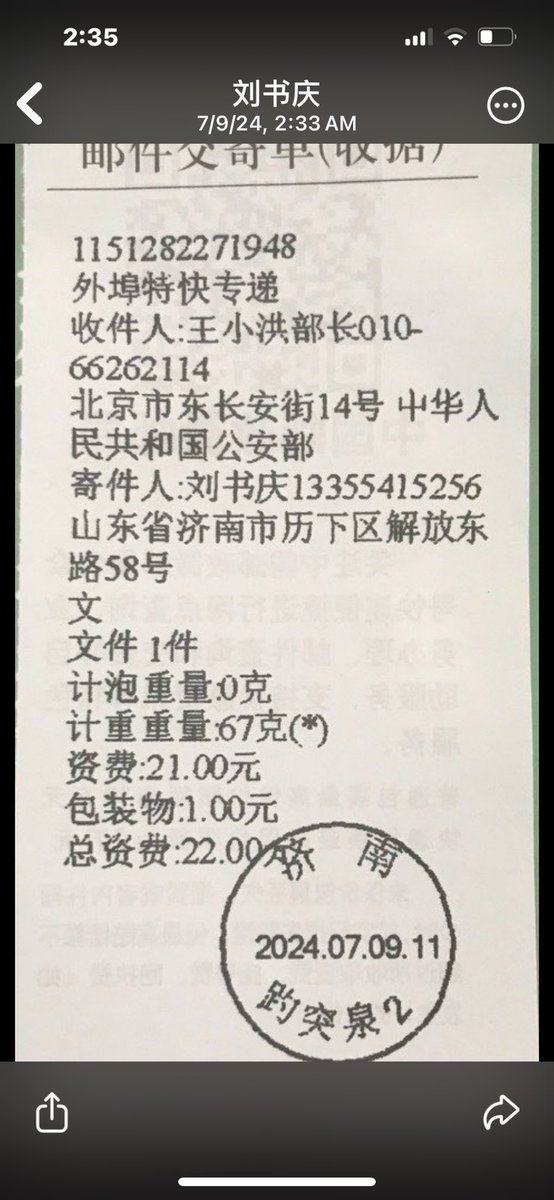 2:35
刘书庆
7/9/24, 2:33 AM
邮件交寄单(收据)
1151282271948
外埠特快专递
收件人:王小洪部长010-
66262114
北京市东长安街14号 中华人
民共和国公安部
寄件人:刘书庆13355415256
山东省济南市历下区解放东
路58号
文
文件 1件
计泡重量:0克
计重重量:67克(*)
资费:21.00元
包装物:1.00元
总资费:22.00元
济南
2024.07.09.11
趵突泉2